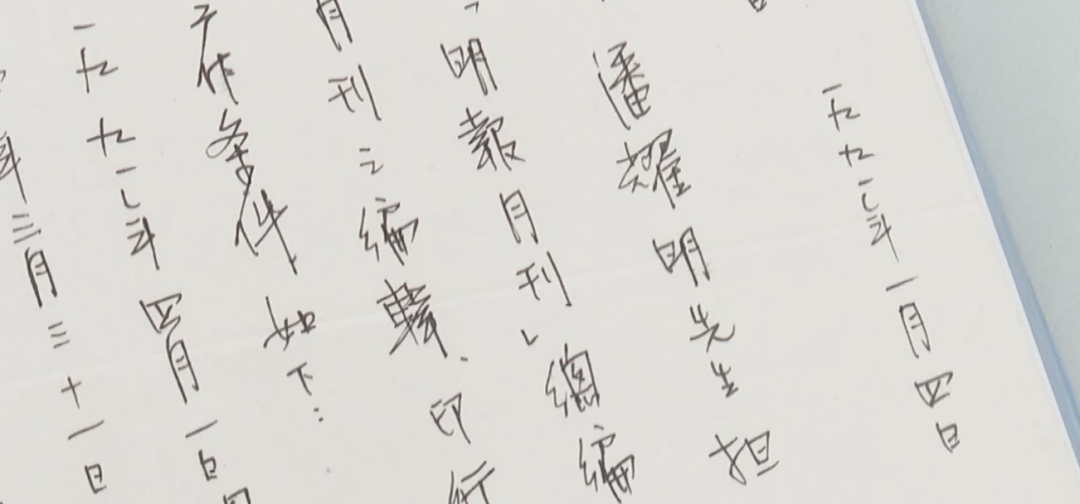 一九九一年一月四日
潘耀明先生担
明報月刊」總編
月刊之編輯、印行
作条件如下：
一九九一年四月一日
年三月三十一日